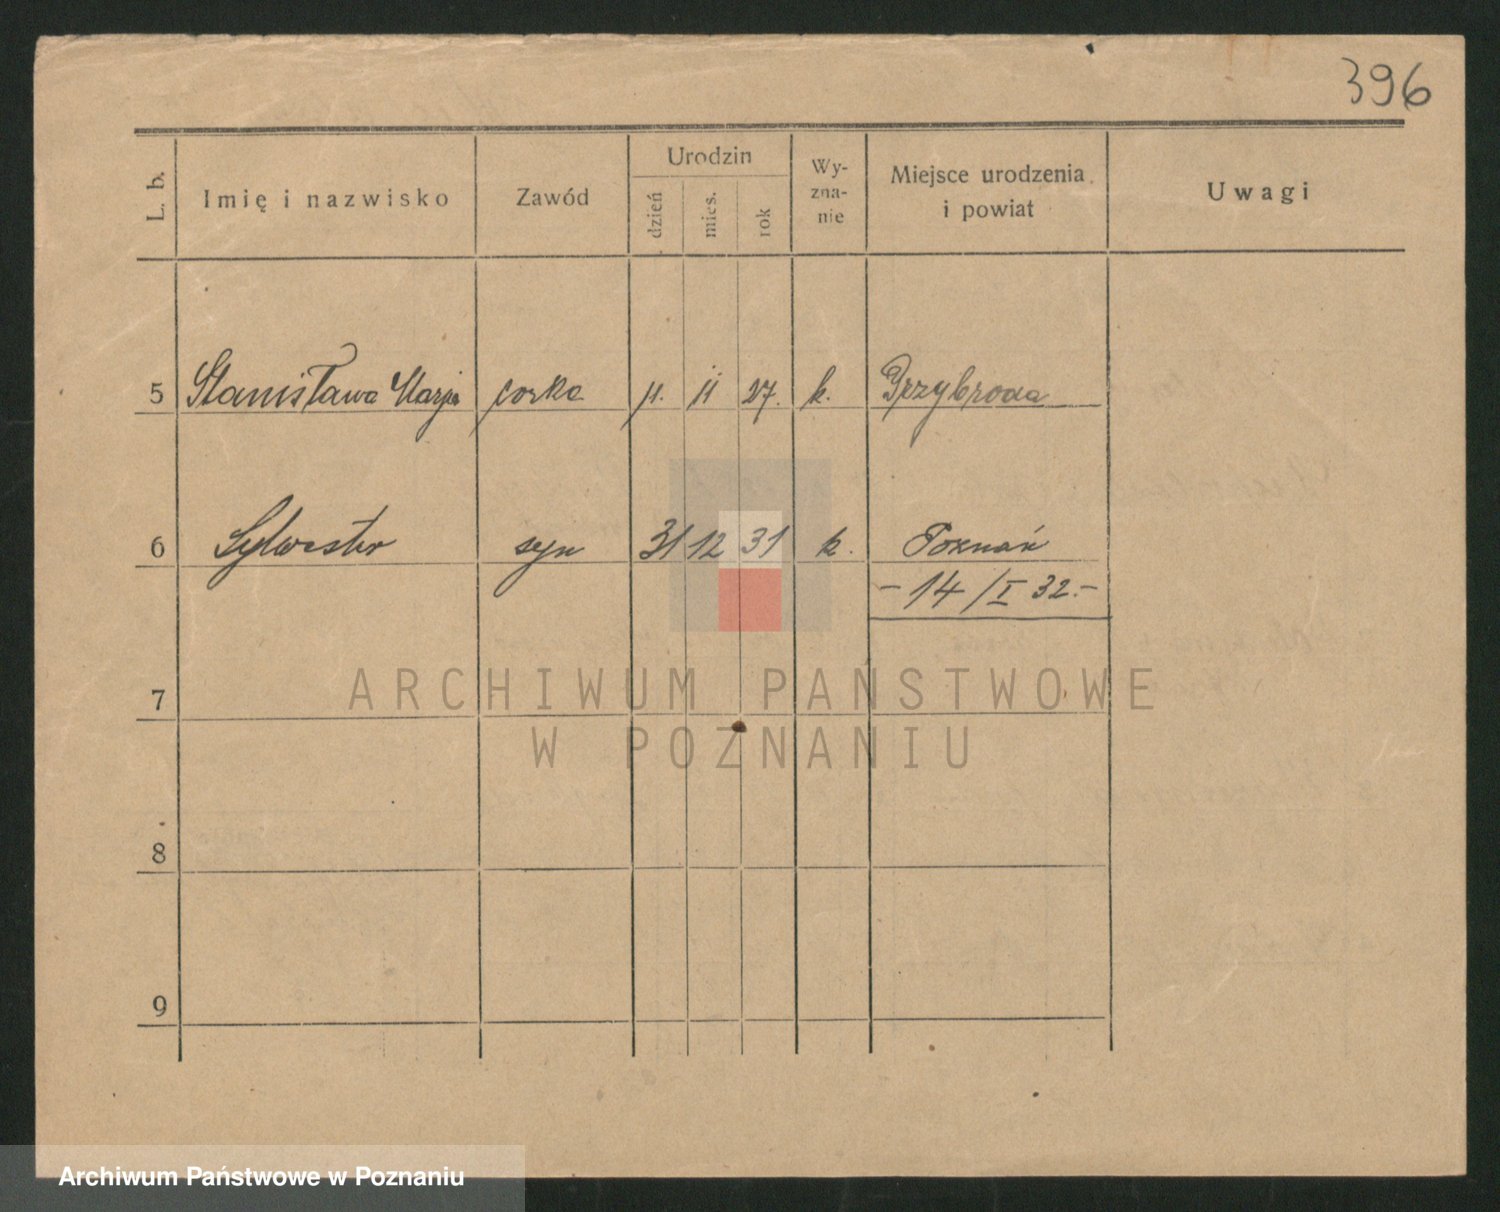 396
L. b. Imię i nazwisko Zawód Urodzin dzień mies. rok Wy-zna-nie Miejsce urodzenia i powiat Uwagi
5 Stanisława Marja corka 11. 11 27. k. Przybroda
6 Sylwester syn 31 12 31 k. Poznań
- 14/I 32.-
ARCHIWUM PAŃSTWOWE
7
W POZNANIU
8
9
Archiwum Państwowe w Poznaniu